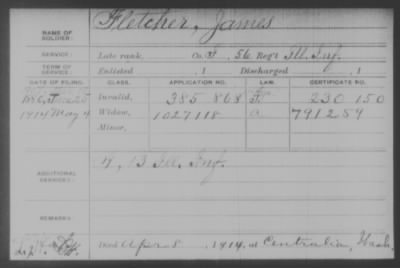 NAME OF SOLDIER: Fletcher, James
SERVICE: Late rank, Co. F, 56 Reg't Ill. Inf.
TERM OF SERVICE: Enlisted , 1 Discharged , 1
DATE OF FILING. CLASS. APPLICATION NO. LAW. CERTIFICATE NO.
Invalid, 385 868 230 150
1914 May 4 Widow, 1027118 791259
Minor,
ADDITIONAL SERVICES: H, 13 Ill. Inf.
REMARKS:
Died Apr 8, 1914, at Centralia, Wash.